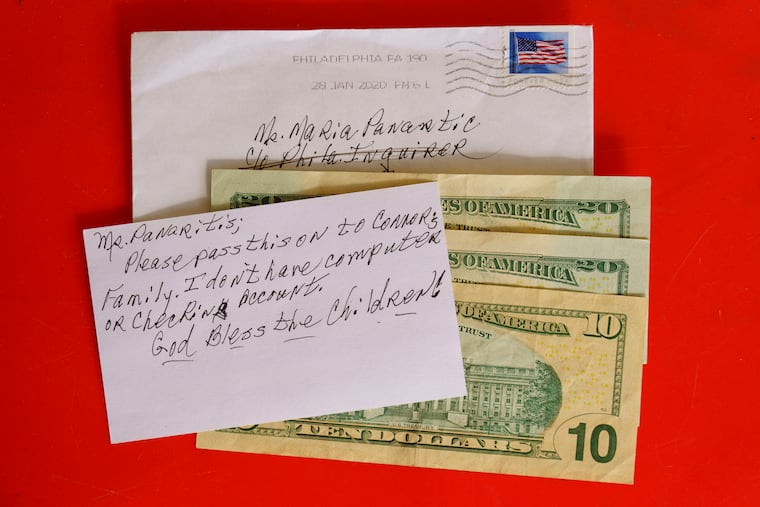 PHILADELPHIA PA 190
28 JAN 2020 PM 6 L
FOREVER
Ms. Maria Panaritic
c/o Phila. Inquirer
Ms. Panaritis;
Please pass this on to Connor's
Family. I don't have computer
or checking account.
God Bless the Children!
20
ES OF AMERICA
20
THE TRUST
S OF AMERICA
20
TRUST
OF AMERICA
10
TRUST
U.S. TREASURY
TEN DOLLARS
10